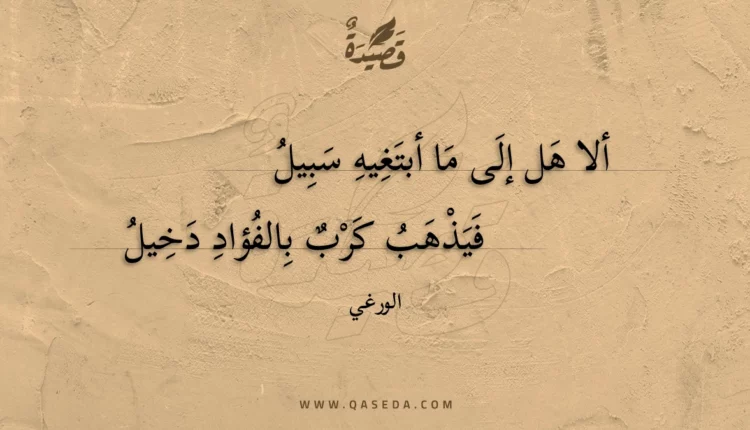 قَصِيدَةٌ
ألا هَل إلَى مَا أبتَغِيهِ سَبِيلُ
فَيَذْهَبُ كَرْبٌ بِالفُؤادِ دَخِيلُ
الورغي
WWW.QASEDA.COM